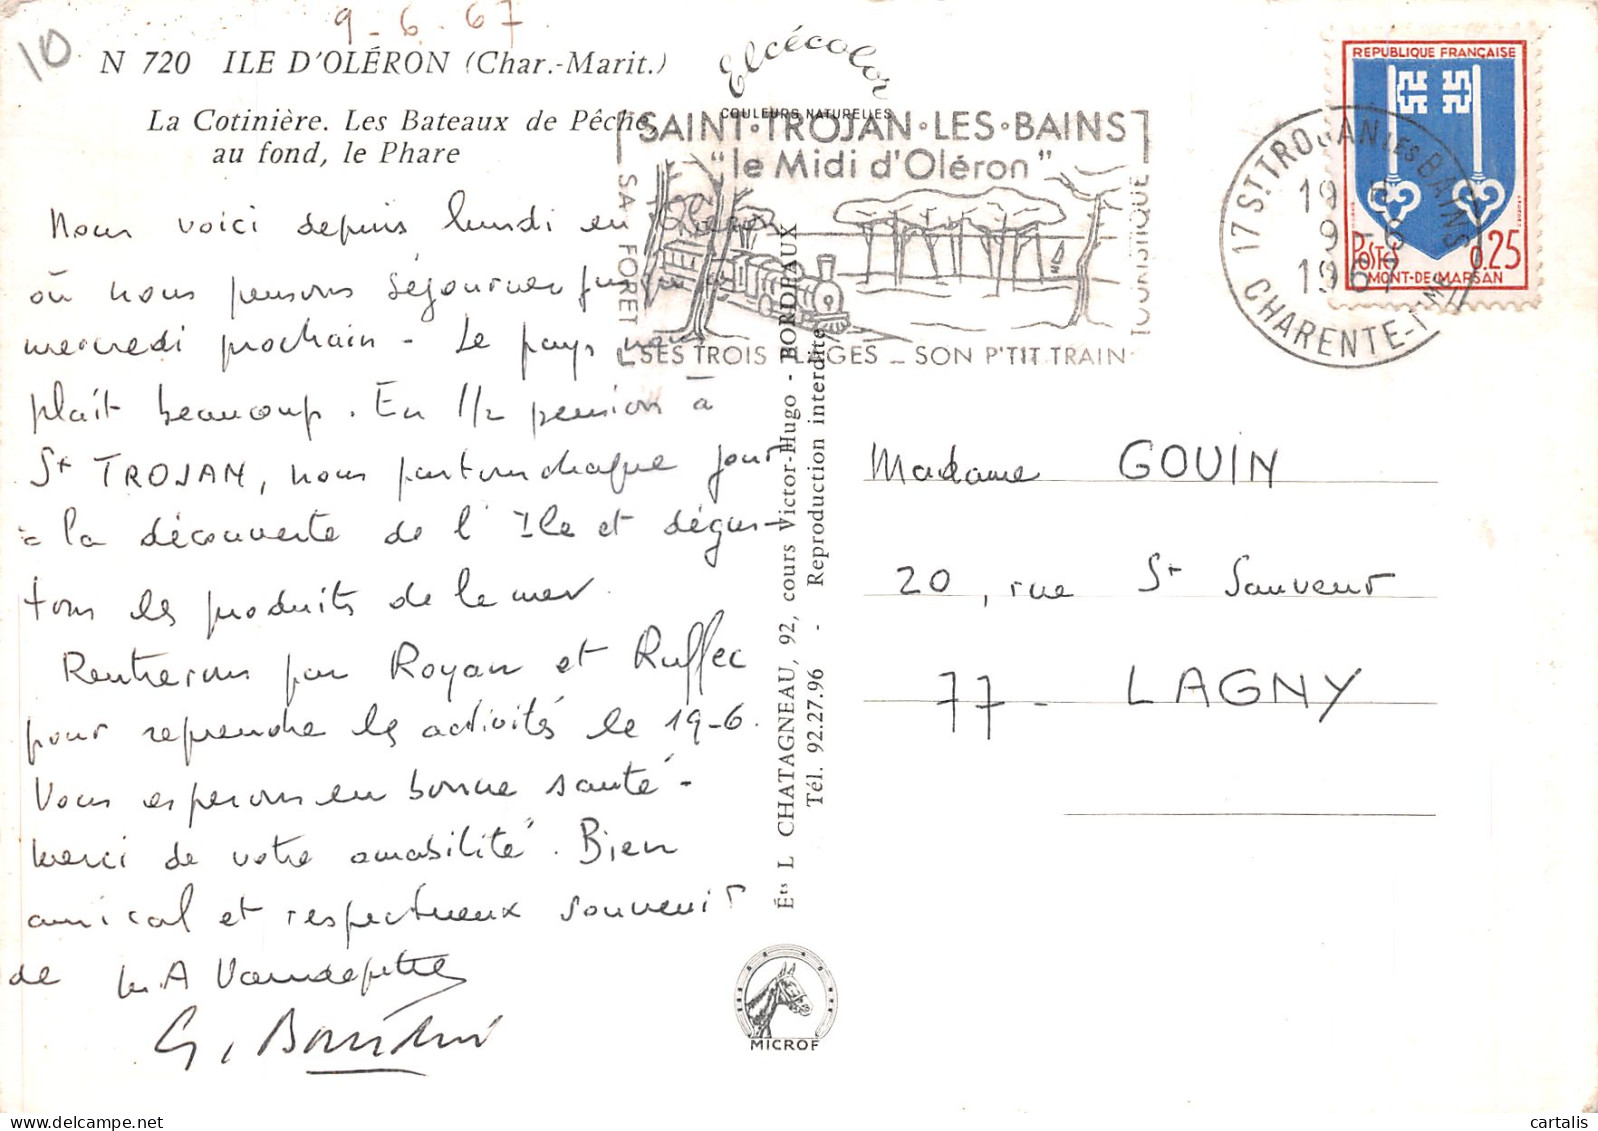 10
9-6-67
N 720 ILE D'OLÉRON (Char.-Marit.)
La Cotinière. Les Bateaux de Pêche,
au fond, le Phare
Elcécolor
COULEURS NATURELLES
SAINT·TROJAN·LES·BAINS
"le Midi d'Oléron"
SA FORET
TOURISTIQUE
SES TROIS PLAGES - SON P'TIT TRAIN
17 ST TROJAN LES BAINS
19 H
9-6
1967
CHARENTE-MME
REPUBLIQUE FRANÇAISE
POSTES 0,25
MONT-DE-MARSAN
Nous voici depuis lundi en
où nous pensons séjourner jusqu'
mercredi prochain - Le pays nous
plaît beaucoup. En 1/2 pension à
St TROJAN, nous partons chaque jour
à la découverte de l'Ile et dégus-
tons les produits de la mer.
Rentrerons par Royan et Ruffec
pour reprendre les activités le 19-6.
Vous espérons en bonne santé -
Merci de votre amabilité. Bien
amical et respectueux souvenir
de
Éts L CHATAGNEAU, 92, cours Victor-Hugo - BORDEAUX
Tél. 92.27.96 - Reproduction interdite
MICROF
Madame GOUIN
20, rue St Sauveur
77 - LAGNY
cartalis
delcampe.net